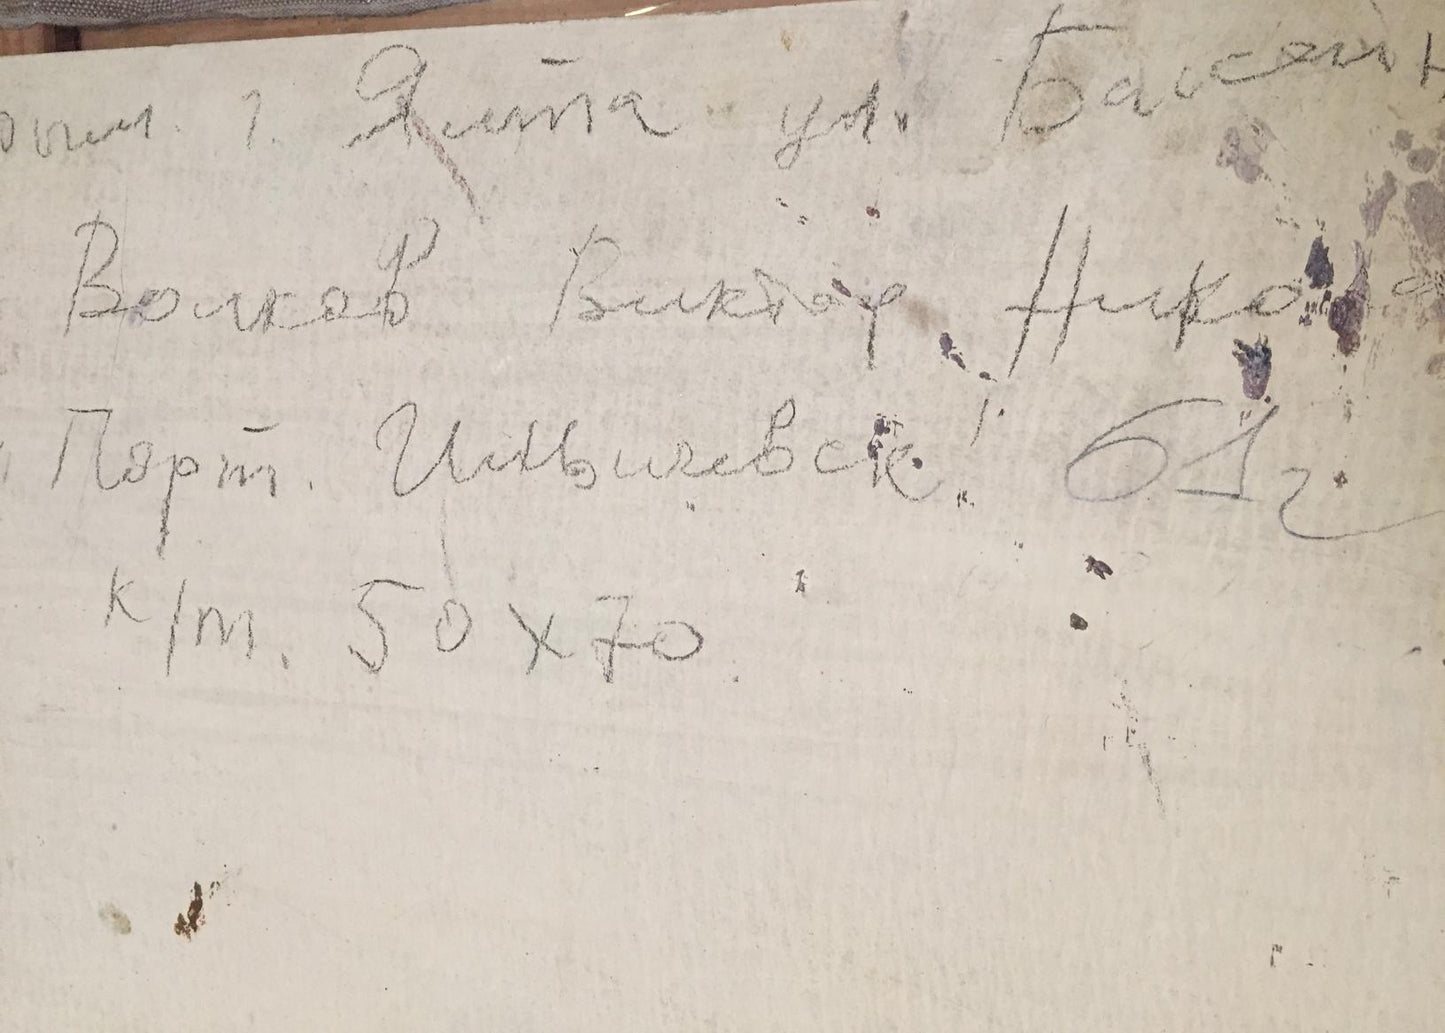 рым. г. Ялта ул. Бассейн
Волков Виктор Никола
"Порт. Ильичевск" 61г
к/т. 50х70.